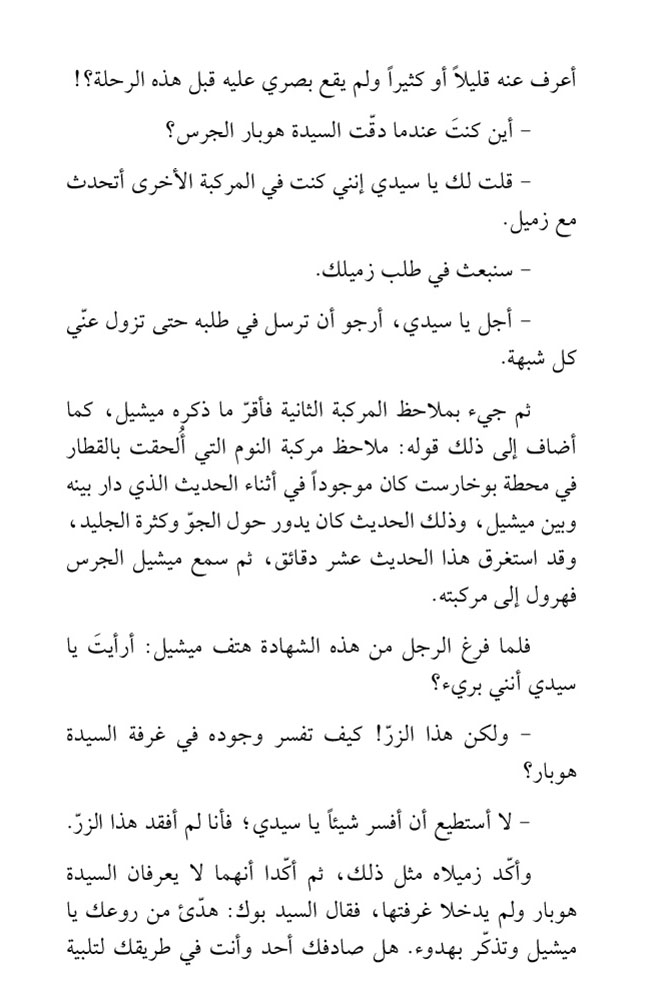 أعرف عنه قليلاً أو كثيراً ولم يقع بصري عليه قبل هذه الرحلة؟!
– أين كنتَ عندما دقّت السيدة هوبار الجرس؟
– قلت لك يا سيدي إنني كنت في المركبة الأخرى أتحدث
مع زميل.
– سنبعث في طلب زميلك.
– أجل يا سيدي، أرجو أن ترسل في طلبه حتى تزول عنّي
كل شبهة.
ثم جيء بملاحظ المركبة الثانية فأقرّ ما ذكره ميشيل، كما
أضاف إلى ذلك قوله: ملاحظ مركبة النوم التي أُلحقت بالقطار
في محطة بوخارست كان موجوداً في أثناء الحديث الذي دار بينه
وبين ميشيل، وذلك الحديث كان يدور حول الجوّ وكثرة الجليد،
وقد استغرق هذا الحديث عشر دقائق، ثم سمع ميشيل الجرس
فهرول إلى مركبته.
فلما فرغ الرجل من هذه الشهادة هتف ميشيل: أرأيتَ يا
سيدي أنني بريء؟
– ولكن هذا الزرّ! كيف تفسر وجوده في غرفة السيدة
هوبار؟
– لا أستطيع أن أفسر شيئاً يا سيدي؛ فأنا لم أفقد هذا الزرّ.
وأكّد زميلاه مثل ذلك، ثم أكّدا أنهما لا يعرفان السيدة
هوبار ولم يدخلا غرفتها، فقال السيد بوك: هدّئ من روعك يا
ميشيل وتذكّر بهدوء. هل صادفك أحد وأنت في طريقك لتلبية